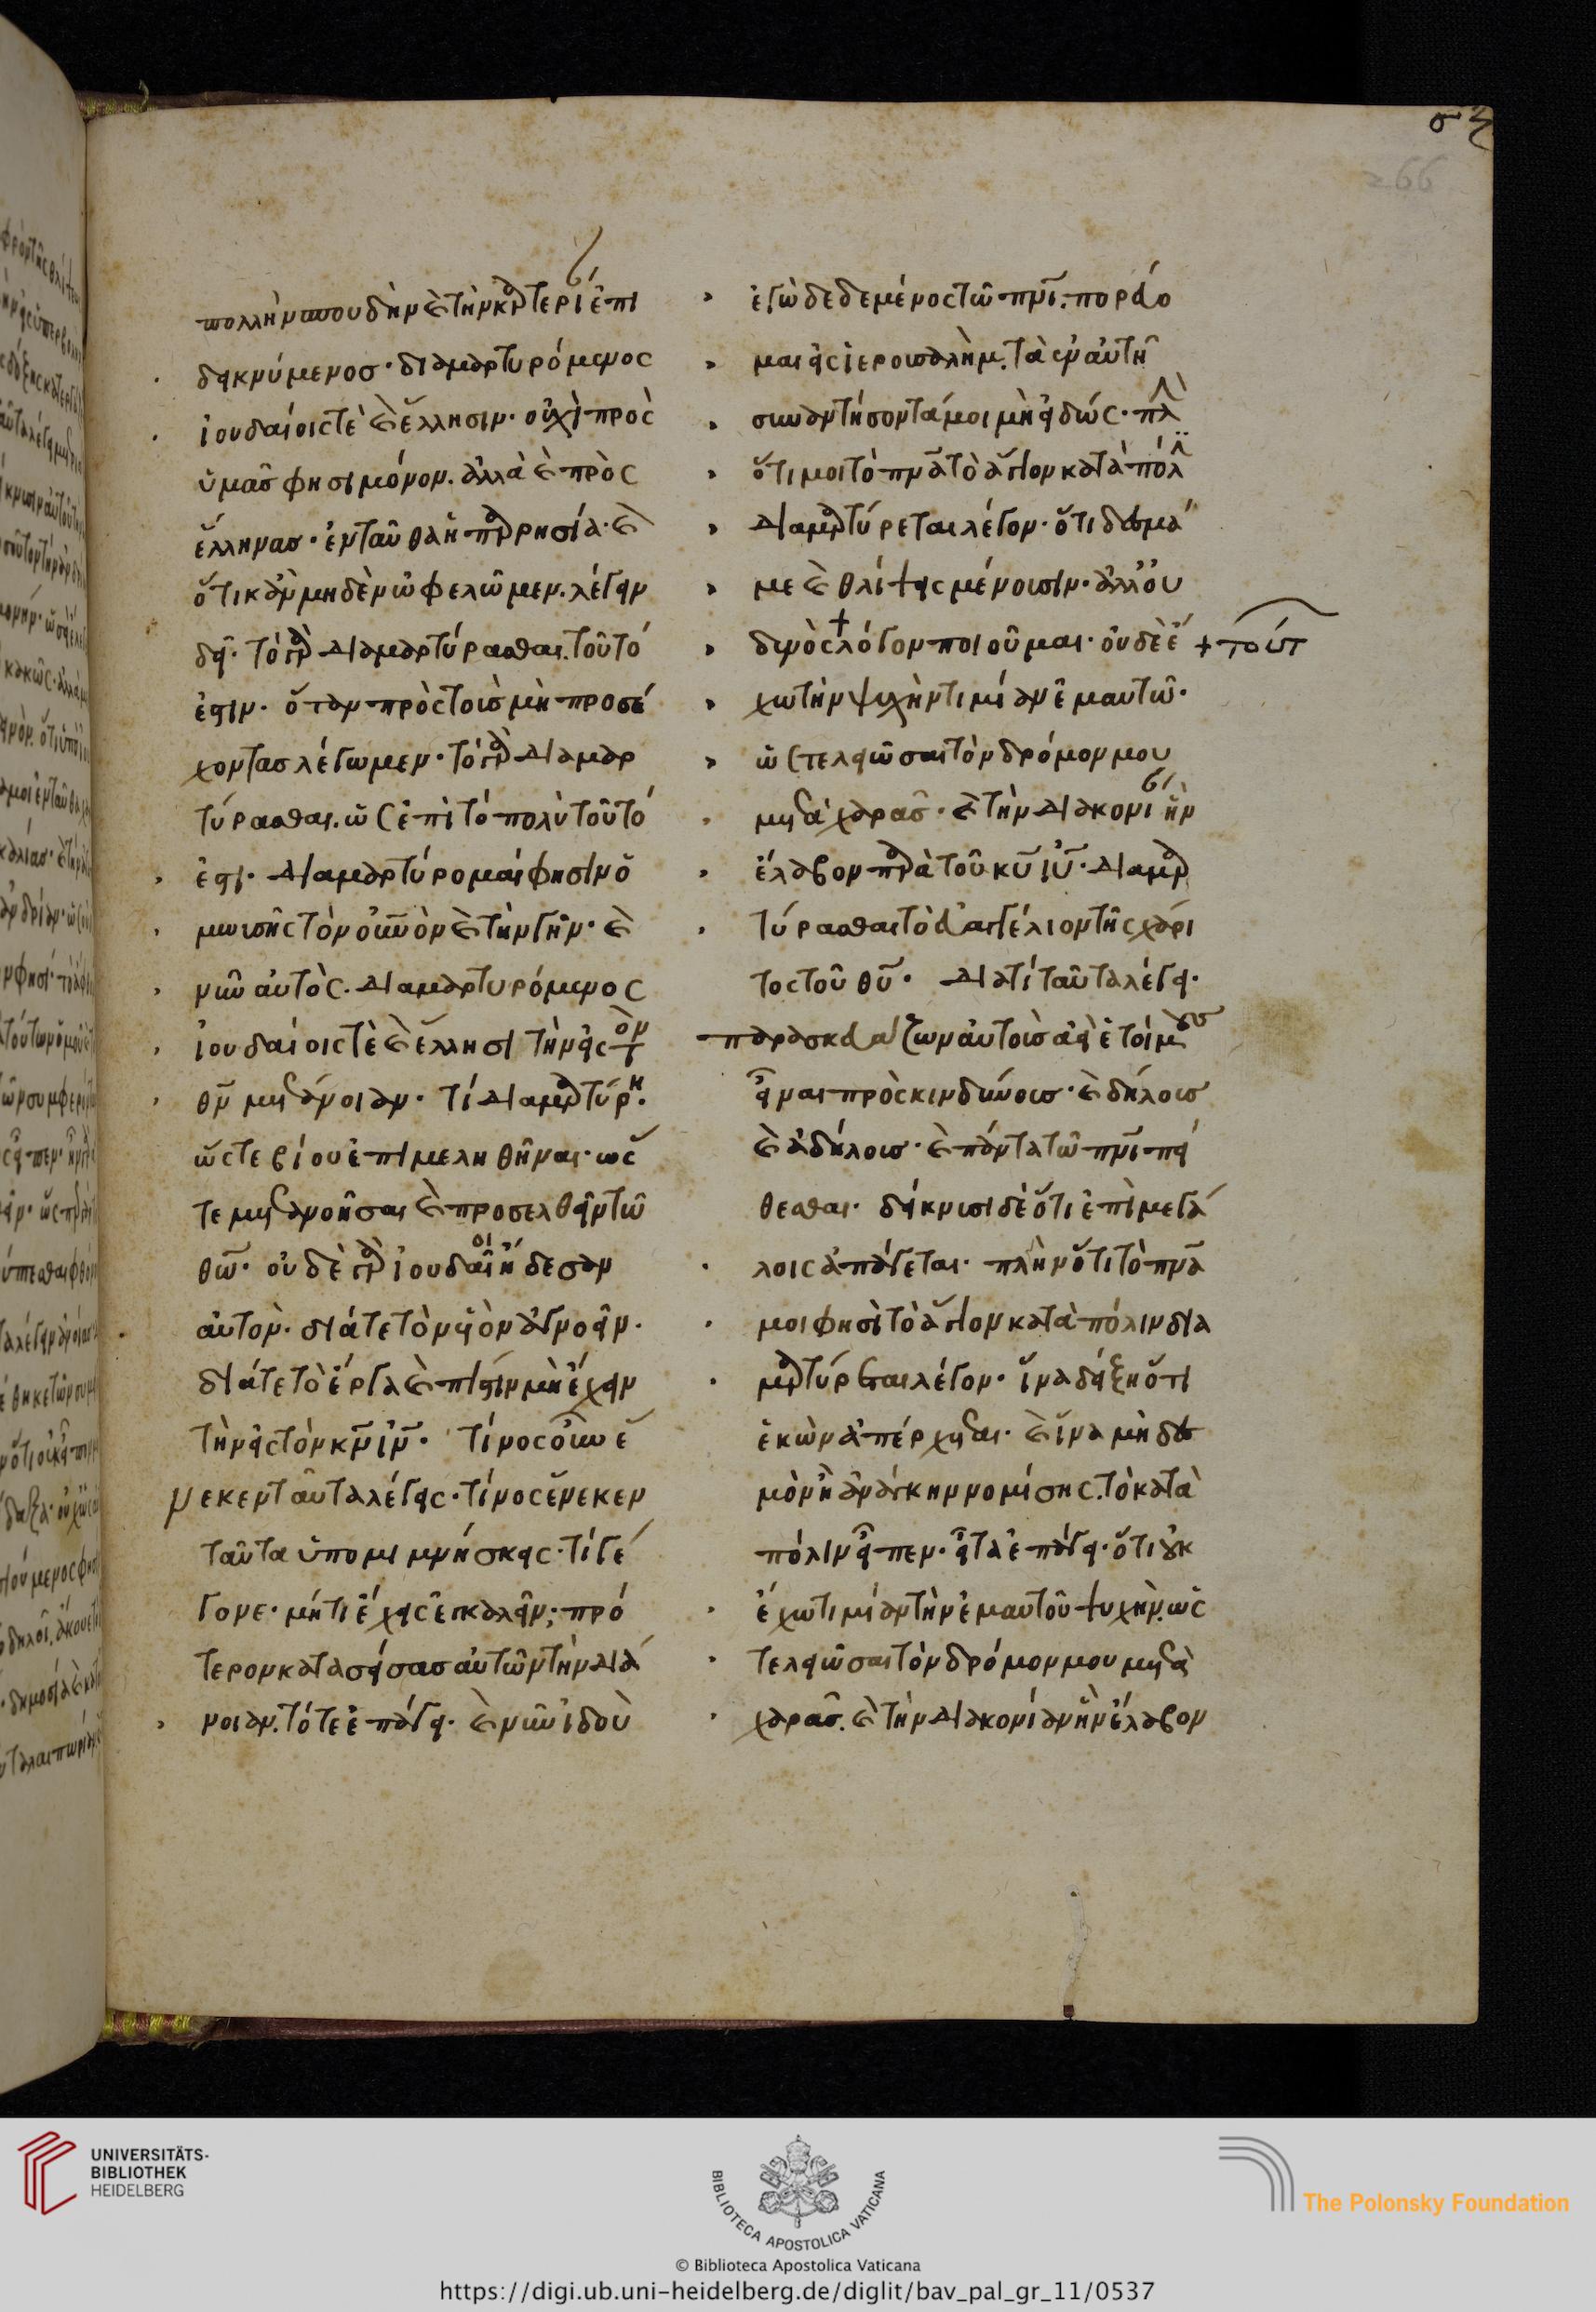 σξϛ
266
πολλὴν σπουδὴν καὶ τὴν καρτερίαν ἐπι
δεικνύμενος· διαμαρτυρόμενος
ἰουδαίοις τὲ καὶ ἕλλησιν· οὐχὶ πρὸς
ὑμᾶς φησὶ μόνον. ἀλλὰ καὶ πρὸς
ἕλληνας· ἐνταῦθα ἡ παρρησία· καὶ
ὅτι κἂν μηδὲν ὠφελῶμεν. λέγειν
δεῖ· τὸ γὰρ διαμαρτύρασθαι. τοῦτό
ἐστιν· ὅταν πρὸς τοὺς μὴ προσέ
χοντας λέγωμεν· τὸ γὰρ διαμαρ
τύρασθαι. ὡς ἐπὶ τὸ πολὺ τοῦτό
ἐστι· διαμαρτύρομαι φησὶν ὁ
μωυσῆς τὸν οὐνὸν καὶ τὴν γῆν· καὶ
νῦν αὐτὸς. διαμαρτυρόμενος
ἰουδαίοις τὲ καὶ ἕλλησι τὴν εἰς τὸν
θν μετάνοιαν· τί διαμαρτύρη·
ὥστε βίου ἐπιμεληθῆναι· ὥσ
τε μετανοῆσαι καὶ προσελθεῖν τῶ
θω· οὐδὲ γὰρ ἰουδαῖοι ἤδεσαν
αὐτὸν· διά τε τὸν υἱὸν ἀγνοεῖν·
διά τε τὸ ἔργα καὶ πίστιν μὴ ἔχειν
τὴν εἰς τὸν κν ιν· τίνος οὖν ἕ
νεκεν ταῦτα λέγεις· τίνος ἕνεκεν
ταῦτα ὑπομιμνήσκεις· τί γέ
γονε· μή τι ἔχεις ἐγκαλεῖν; πρό
τερον κατασείσας αὐτῶν τὴν διά
νοιαν. τότε ἐπάγει· καὶ νῦν ἰδοὺ
ἐγὼ δεδεμένος τῶ πνι. πορεύο
μαι εἰς ἱερουσαλὴμ. τὰ ἐν αὐτῆ
συναντήσοντά μοι μὴ εἰδώς· πλ
ὅτι μοι τὸ πνα τὸ ἅγιον κατὰ πόλ
διαμαρτύρεται λέγον· ὅτι δεσμά
με καὶ θλίψεις μένουσιν· ἀλλ' οὐ
δενὸς λόγον ποιοῦμαι· οὐδὲ ἔ + τούτ
χω τὴν ψυχὴν τιμίαν ἐμαυτῶ·
ὡς τελειῶσαι τὸν δρόμον μου
μετὰ χαρᾶς· καὶ τὴν διακονίαν ἣν
ἔλαβον παρὰ τοῦ κυ ιυ· διαμαρ
τύρασθαι τὸ εὐαγγέλιον τῆς χάρι
τος τοῦ θυ· διατί ταῦτα λέγει·
παρασκευάζων αὐτοὺς ἀεὶ ἑτοίμους
εἶναι πρὸς κινδύνους· καὶ δήλους
καὶ ἀδήλους· καὶ πάντα τῶ πνι πεί
θεσθαι· δείκνυσι δὲ ὅτι ἐπὶ μεγά
λοις ἀπάγεται· πλὴν ὅτι τὸ πνα
μοι φησὶ τὸ ἅγιον κατὰ πόλιν δια
μαρτύρεται λέγον· ἵνα δείξη ὅτι
ἑκὼν ἀπέρχεται· καὶ ἵνα μὴ δεσ
μὸν ἢ ἀνάγκην νομίσης. τὸ κατὰ
πόλιν εἶπεν· εἶτα ἐπάγει· ὅτι οὐκ
ἔχω τιμίαν τὴν ἐμαυτοῦ ψυχὴν. ὡς
τελειῶσαι τὸν δρόμον μου μετὰ
χαρᾶς. καὶ τὴν διακονίαν ἣν ἔλαβον
UNIVERSITÄTS-
BIBLIOTHEK
HEIDELBERG
BIBLIOTECA APOSTOLICA VATICANA
The Polonsky Foundation
© Biblioteca Apostolica Vaticana
https://digi.ub.uni-heidelberg.de/diglit/bav_pal_gr_11/0537